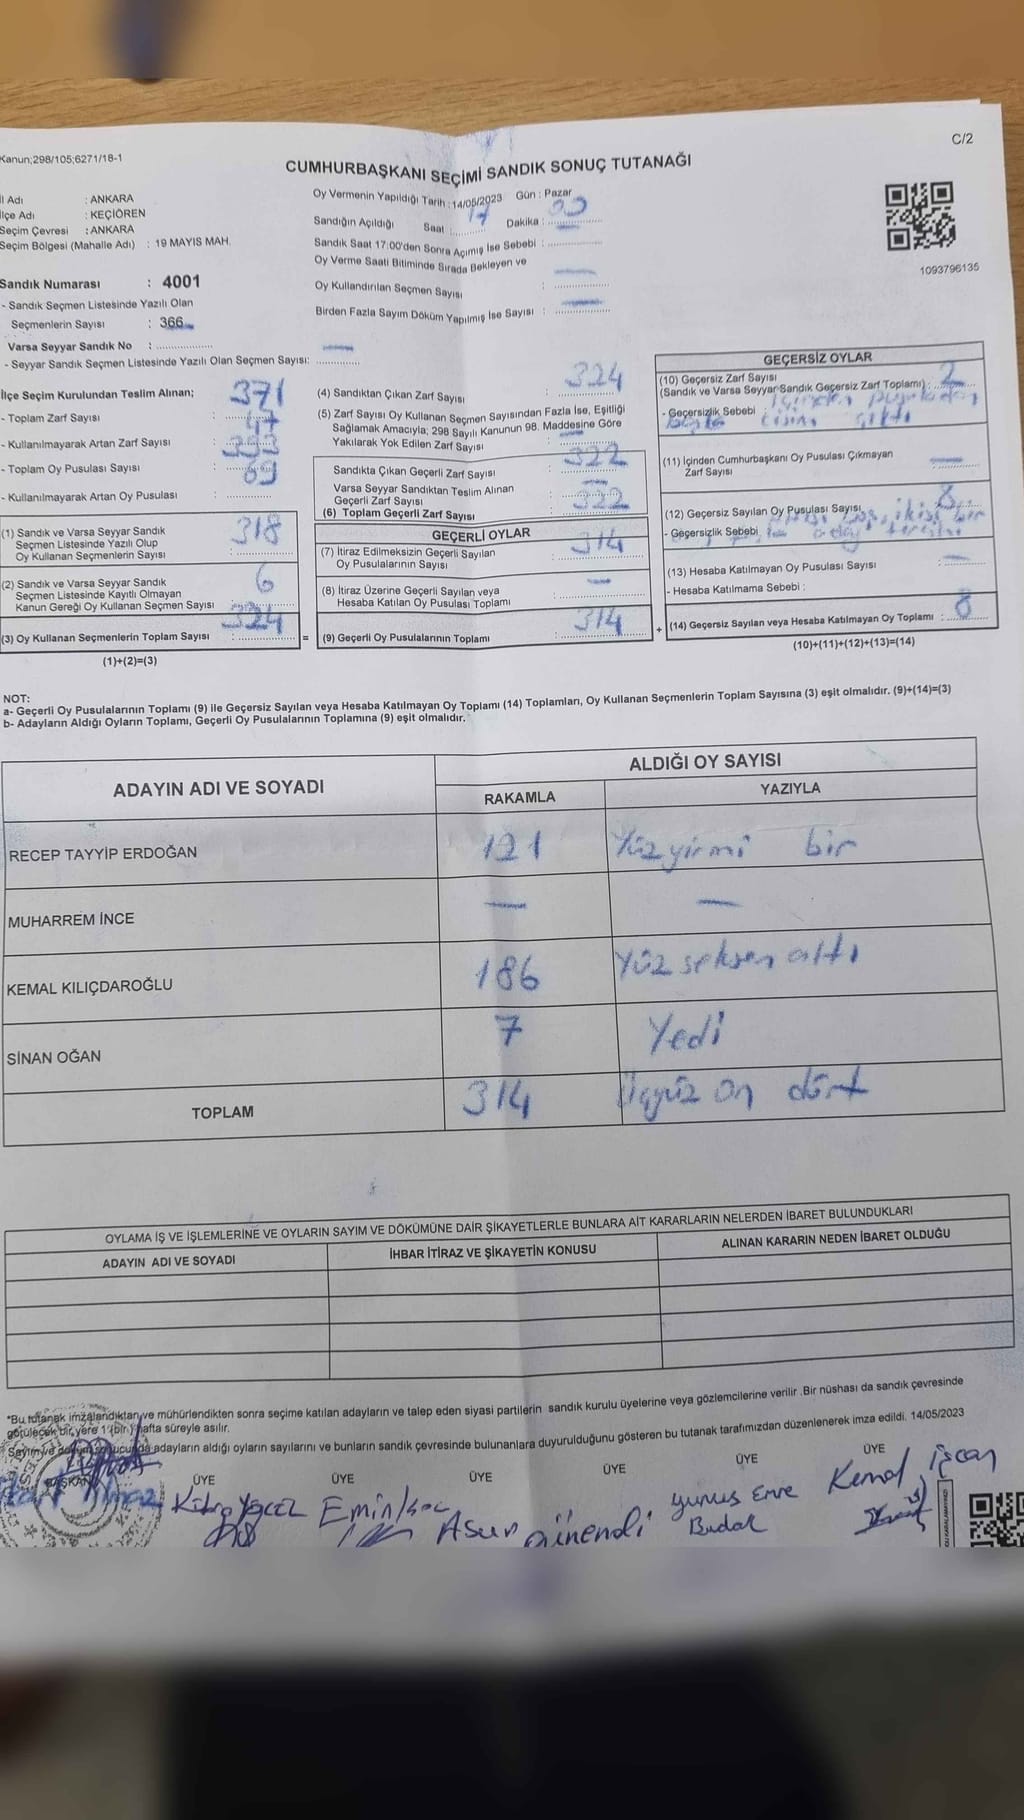 Kanun;298/105;6271/18-1
C/2
CUMHURBAŞKANI SEÇİMİ SANDIK SONUÇ TUTANAĞI
İl Adı : ANKARA
İlçe Adı : KEÇİÖREN
Seçim Çevresi : ANKARA
Seçim Bölgesi (Mahalle Adı) : 19 MAYIS MAH.
Oy Vermenin Yapıldığı Tarih : 14/05/2023 Gün : Pazar
Sandığın Açıldığı Saat : 17 Dakika :
Sandık Saat 17:00'den Sonra Açımış İse Sebebi :
Oy Verme Saati Bitiminde Sırada Bekleyen ve
Oy Kullandırılan Seçmen Sayısı : —
Birden Fazla Sayım Döküm Yapılmış İse Sayısı : —
1093796135
Sandık Numarası : 4001
- Sandık Seçmen Listesinde Yazılı Olan
Seçmenlerin Sayısı : 366
Varsa Seyyar Sandık No :
- Seyyar Sandık Seçmen Listesinde Yazılı Olan Seçmen Sayısı: —
İlçe Seçim Kurulundan Teslim Alınan;
- Toplam Zarf Sayısı : 371
- Kullanılmayarak Artan Zarf Sayısı : 47
- Toplam Oy Pusulası Sayısı : 393
- Kullanılmayarak Artan Oy Pusulası : 69
(1) Sandık ve Varsa Seyyar Sandık
Seçmen Listesinde Yazılı Olup
Oy Kullanan Seçmenlerin Sayısı : 318
(2) Sandık ve Varsa Seyyar Sandık
Seçmen Listesinde Kayıtlı Olmayan
Kanun Gereği Oy Kullanan Seçmen Sayısı : 6
(3) Oy Kullanan Seçmenlerin Toplam Sayısı : 324
(1)+(2)=(3)
(4) Sandıktan Çıkan Zarf Sayısı : 324
(5) Zarf Sayısı Oy Kullanan Seçmen Sayısından Fazla İse, Eşitliği
Sağlamak Amacıyla; 298 Sayılı Kanunun 98. Maddesine Göre
Yakılarak Yok Edilen Zarf Sayısı : —
Sandıkta Çıkan Geçerli Zarf Sayısı : 322
Varsa Seyyar Sandıktan Teslim Alınan
Geçerli Zarf Sayısı : —
(6) Toplam Geçerli Zarf Sayısı : 322
GEÇERLİ OYLAR
(7) İtiraz Edilmeksizin Geçerli Sayılan
Oy Pusulalarının Sayısı : 314
(8) İtiraz Üzerine Geçerli Sayılan veya
Hesaba Katılan Oy Pusulası Toplamı : —
= (9) Geçerli Oy Pusulalarının Toplamı : 314
GEÇERSİZ OYLAR
(10) Geçersiz Zarf Sayısı
(Sandık ve Varsa Seyyar Sandık Geçersiz Zarf Toplamı) : 2
- Geçersizlik Sebebi : çıktı
(11) İçinden Cumhurbaşkanı Oy Pusulası Çıkmayan
Zarf Sayısı : —
(12) Geçersiz Sayılan Oy Pusulası Sayısı : 8
- Geçersizlik Sebebi
(13) Hesaba Katılmayan Oy Pusulası Sayısı : —
- Hesaba Katılmama Sebebi :
+ (14) Geçersiz Sayılan veya Hesaba Katılmayan Oy Toplamı : 8
(10)+(11)+(12)+(13)=(14)
NOT:
a- Geçerli Oy Pusulalarının Toplamı (9) ile Geçersiz Sayılan veya Hesaba Katılmayan Oy Toplamı (14) Toplamları, Oy Kullanan Seçmenlerin Toplam Sayısına (3) eşit olmalıdır. (9)+(14)=(3)
b- Adayların Aldığı Oyların Toplamı, Geçerli Oy Pusulalarının Toplamına (9) eşit olmalıdır.
ADAYIN ADI VE SOYADI
ALDIĞI OY SAYISI
RAKAMLA YAZIYLA
RECEP TAYYİP ERDOĞAN 121 Yüzyirmi bir
MUHARREM İNCE — —
KEMAL KILIÇDAROĞLU 186 Yüz seksen altı
SİNAN OĞAN 7 Yedi
TOPLAM 314 Üçyüz on dört
OYLAMA İŞ VE İŞLEMLERİNE VE OYLARIN SAYIM VE DÖKÜMÜNE DAİR ŞİKAYETLERLE BUNLARA AİT KARARLARIN NELERDEN İBARET BULUNDUKLARI
ADAYIN ADI VE SOYADI İHBAR İTİRAZ VE ŞİKAYETİN KONUSU ALINAN KARARIN NEDEN İBARET OLDUĞU
"Bu tutanak imzalandıktan ve mühürlendikten sonra seçime katılan adayların ve talep eden siyasi partilerin sandık kurulu üyelerine veya gözlemcilerine verilir .Bir nüshası da sandık çevresinde
görülecek bir yere 1 (bir) hafta süreyle asılır.
Sayım ve döküm sonucunda adayların aldığı oyların sayılarını ve bunların sandık çevresinde bulunanlara duyurulduğunu gösteren bu tutanak tarafımızdan düzenlenerek imza edildi. 14/05/2023
BAŞKAN ÜYE ÜYE ÜYE ÜYE ÜYE ÜYE
Yılmaz Kübra Yücel Emin Koç Asun Yunus Emre Budak Kemal İşcan